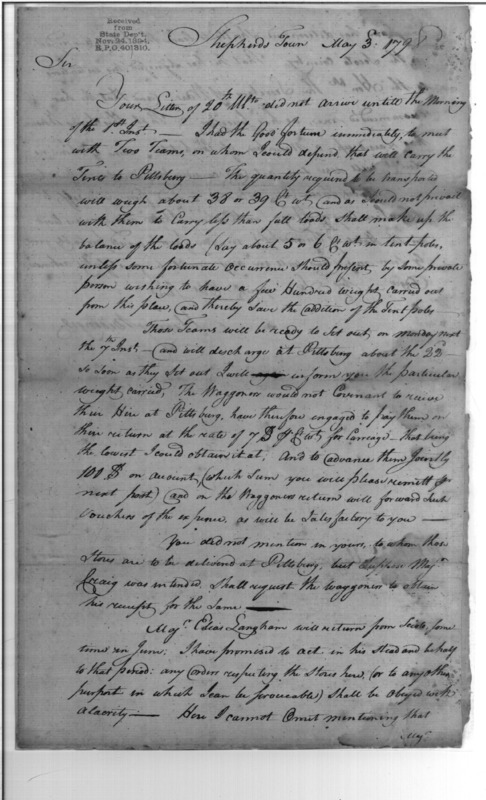 Received
from
State Dep't.
Nov. 24, 1894.
R.P.O. 401310.
Shepherds Town May 3d. 179
Sir
Your Letter of 20th Ulto did not arrive untill the Morning
of the 1st Inst — I had the Good fortune immediately, to meet
with Two Teams, on whom I could depend that will carry the
Tents to Pittsburg — The quantity required to be transported
will weigh about 38 or 39 Ct wt, (and as I could not prevail
with them to Carry less than full loads, Shall make up the
balance of the loads (Say about 5 or 6 Ct wt. in tent poles,
unless some fortunate Occurrence Should present, by some private
person wishing to have a few Hundred weight, carried out
from this place, and thereby Save the addition of the Tent poles
These Teams will be ready to Set out, on monday next
the 7th Inst. — and will discharge at Pittsburg about the 22
So Soon as they Set out I will inform you the particular
weight carried, The Waggoners would not Covenant to receive
their Hire at Pittsburg, have therefore engaged to pay them on
their return at the rate of 7 D P Ct wt, for Carriage — that being
the lowest I could obtain it at, And to advance them Jointly
100 D on account, (which Sum you will please remitt P
next post) (and on the Waggoners return will forward Such
Vouchers of the expence, as will be Satisfactory to you —
You did not mention in yours, to whom these
Stores are to be delivered at Pittsburg, but Suppose Majr
Craig was intended, Shall request the Waggoners to
his receipt, for the Same —
Majr. Elias Langham will return from Scioto, some
time in June. I have promised to act in his Stead and behalf
to that period: any Orders respecting the Stores here, (or to any other
purport in which I can be Serviceable) Shall be obeyed with
alacrity — Here I cannot Omit mentioning that
Majr